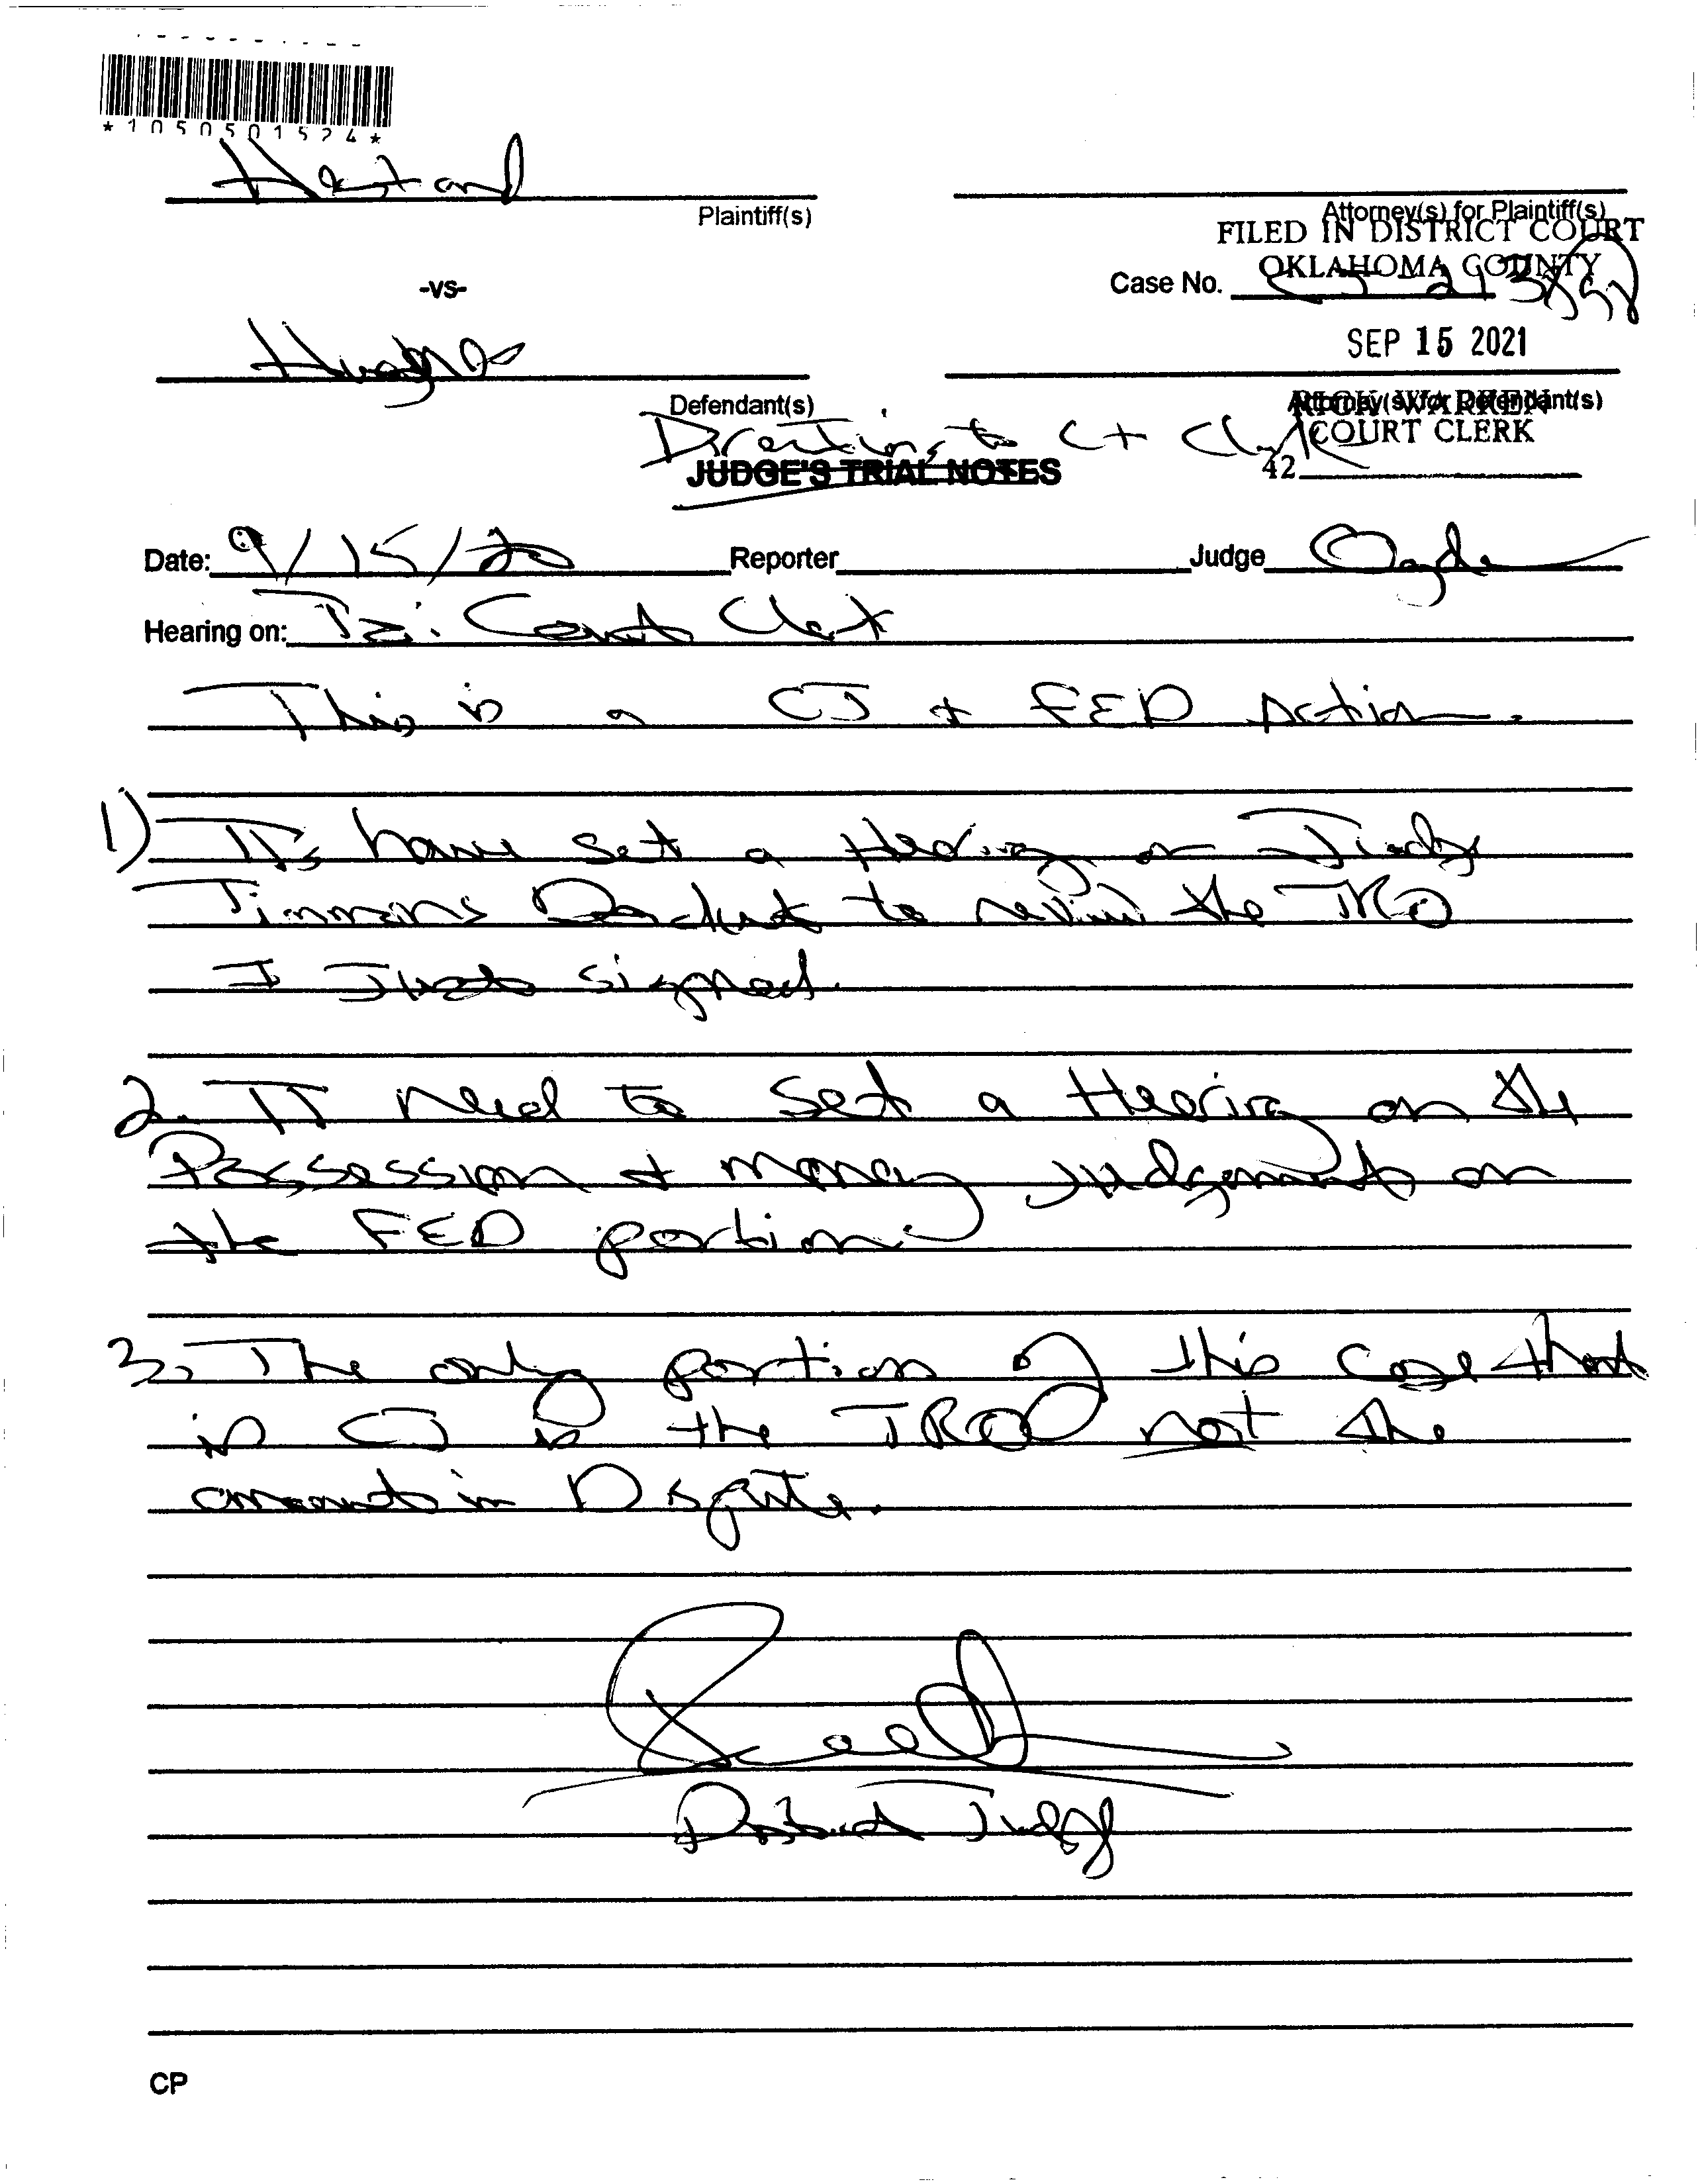 *1050501524*
Hestand
Plaintiff(s)
Attorney(s) for Plaintiff(s)
FILED IN DISTRICT COURT
OKLAHOMA COUNTY
-vs-
Case No. CJ 21 38
SEP 15 2021
Hughes
Defendant(s)
Attorney(s) for Defendant(s)
RICK WARREN
COURT CLERK
Directions to Ct Clerk
42
JUDGE'S TRIAL NOTES
Date: 9/15/20 Reporter Judge Ogden
Hearing on: To: Court Clerk
This is a CJ + FED Action.
1) TT's have set a Hearing on Judge
Timmons Docket to review the TRO
I Just signed.
2. TT Need to Set a Hearing on the
Possession + money judgement on
the FED portion
3. The only portion of this case that
is CJ is the TRO not the
amount in Dispute.
District Judge
CP